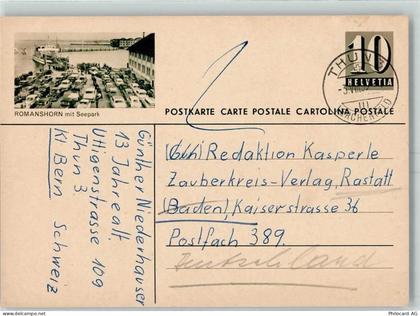 ROMANSHORN mit Seepark
10
HELVETIA
THUN 3
POSTKARTE CARTE POSTALE CARTOLINA POSTALE
Günther Niederhauser
13 Jahre alt.
Uttigenstrasse 109
Thun 3
Kt Bern Schweiz
Redaktion Kasperle
Zauberkreis-Verlag, Rastatt
(Baden), Kaiserstrasse 36
Postfach 389.
Deutschland
www.philocard.de / Philocard AG